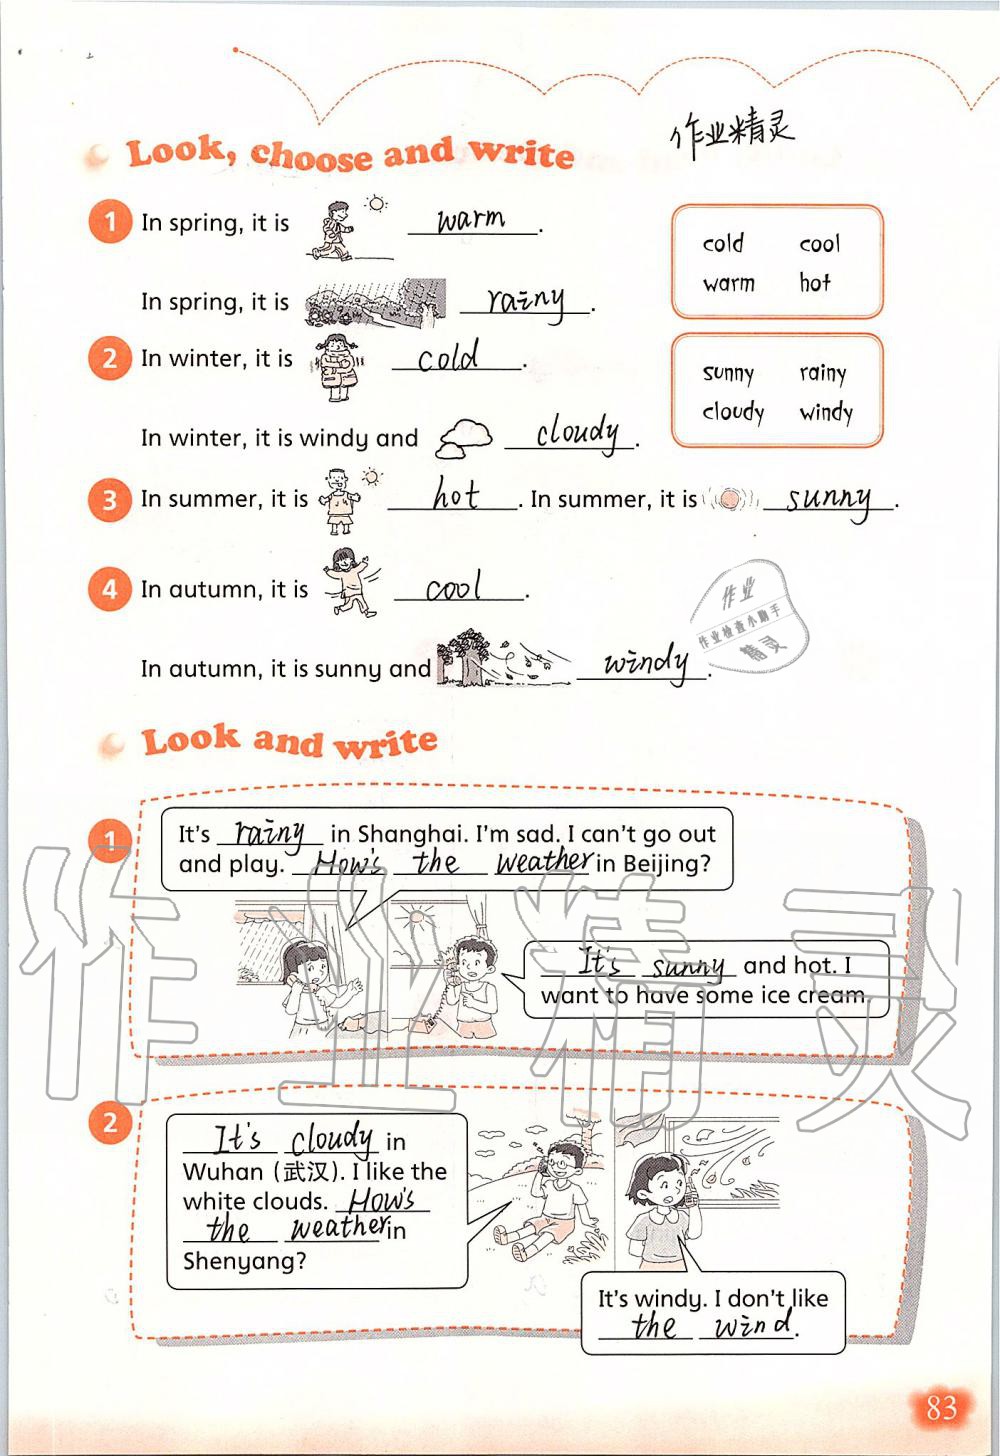 作业精灵
Look, choose and write
1 In spring, it is warm.
cold cool
warm hot
In spring, it is rainy.
2 In winter, it is cold.
sunny rainy
cloudy windy
In winter, it is windy and cloudy.
3 In summer, it is hot. In summer, it is sunny.
4 In autumn, it is cool.
作业
作业检查小助手
精灵
In autumn, it is sunny and windy.
Look and write
1
It's rainy in Shanghai. I'm sad. I can't go out
and play. How's the weather in Beijing?
It's sunny and hot. I
want to have some ice cream.
作业精灵
2
It's cloudy in
Wuhan (武汉). I like the
white clouds. How's
the weather in
Shenyang?
It's windy. I don't like
the wind.
83